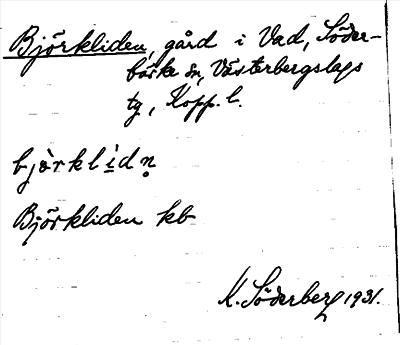 Björkliden, gård i Vad, Söder-
bärke sn, Västerbergslags
tg, Kopp. l.
björklìdn̥
Björkliden kb
K. Söderberg 1931.